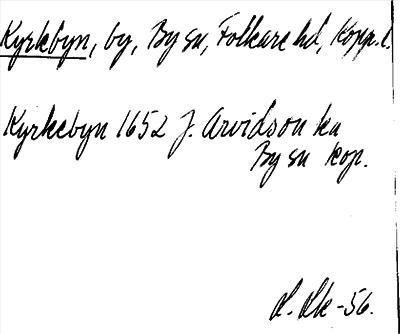 Kyrkebyn, by, By sn, Folkare hd, Kopp. l.
Kyrkebyn 1652 J. Arvidson ka
By sn Kop.